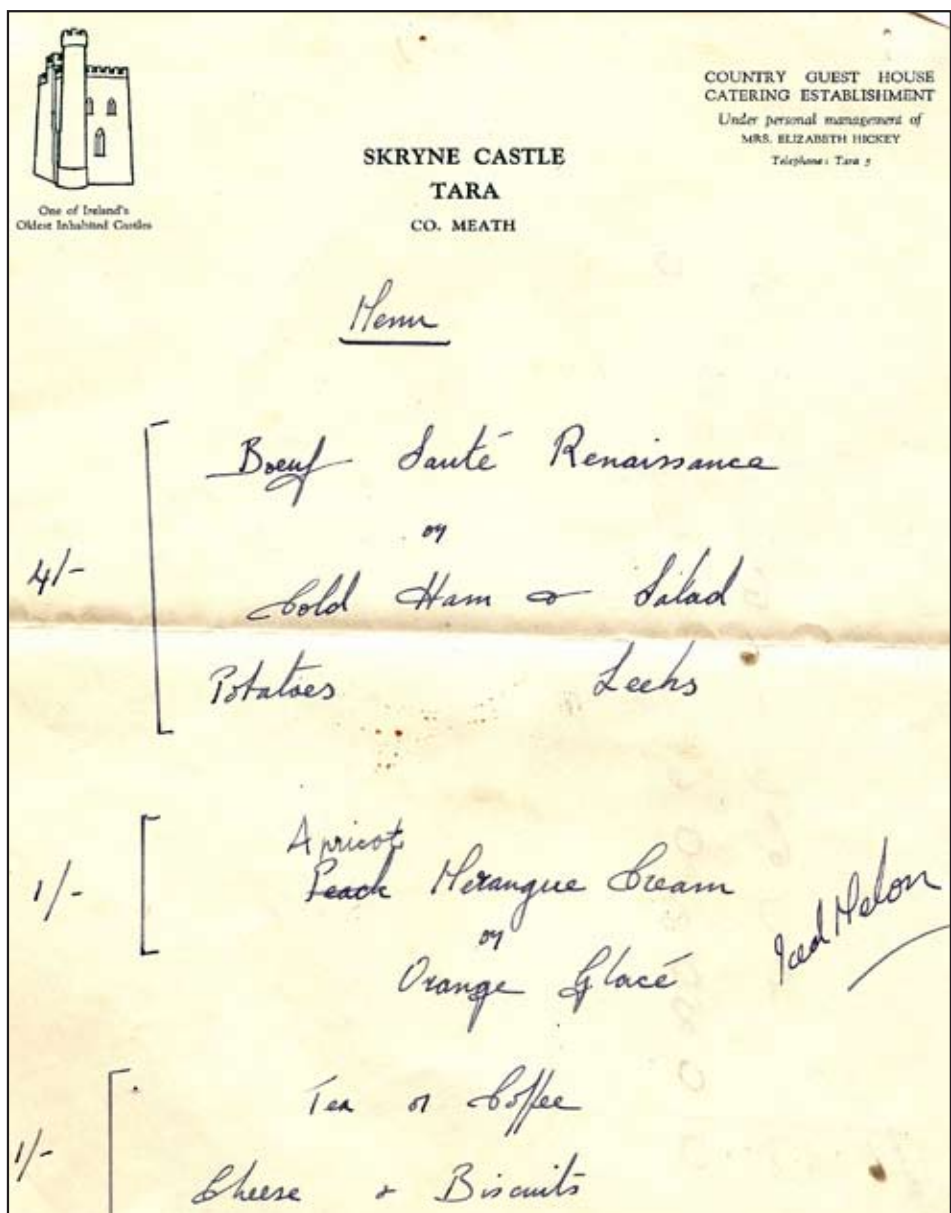 One of Ireland's
Oldest Inhabited Castles
SKRYNE CASTLE
TARA
CO. MEATH
COUNTRY GUEST HOUSE
CATERING ESTABLISHMENT
Under personal management of
MRS. ELIZABETH HICKEY
Telephone: Tara 5
Menu
Boeuf Sauté Renaissance
or
4/-
Cold Ham & Salad
Potatoes Leeks
Apricot
1/- Peach Merangue Cream
or
Orange Glacé
Iced Melon
Tea or Coffee
1/-
Cheese & Biscuits